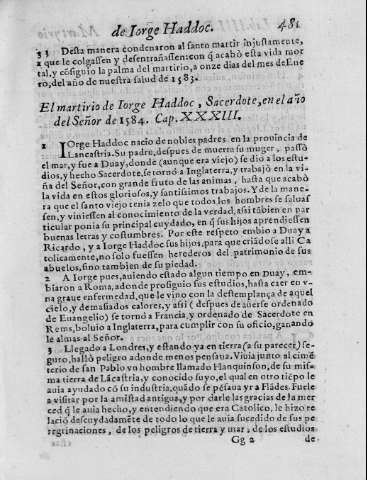 de Iorge Haddoc. 481
33 Desta manera condenaron al santo martir injustamente,
a que le colgassen y desentrañassen: con q̃ acabò esta vida mor
tal, y cõsiguio la palma del martirio, a onze dias del mes de Ene
ro, del año de nuestra salud de 1583.
El martirio de Iorge Haddoc, Sacerdote, en el año
del Señor de 1584. Cap. XXXIII.
1 IOrge Haddoc nacio de nobles padres en la prouincia de
Lancastria. Su padre, despues de muerta su muger, passò
el mar, y fue a Duay, donde (aunque era viejo) se dio a los estu-
dios, y hecho Sacerdote, se tornò a Inglaterra, y trabajò en la vi-
ña del Señor, con grande fruto de las animas, hasta que acabò
la vida en estos gloriosos, y santissimos trabajos. Y de la mane-
ra que el santo viejo tenia zelo que todos los hombres se saluas
sen, y viniessen al conocimiento de la verdad, assi tãbien en par
ticular ponia su principal cuydado, en q̃ sus hijos aprendiessen
buenas letras y costumbres. Por este respeto embio a Duay a
Ricardo, y a Iorge Haddoc sus hijos, para que criãdose alli Ca
tolicamente, no solo fuessen herederos del patrimonio de sus
abuelos, sino tambien de su piedad.
2 A Iorge pues, auiendo estado algun tiempo en Duay, em-
biaron a Roma, adonde prosiguio sus estudios, hasta caer en v-
na graue enfermedad, que le vino con la destemplança de aquel
cielo, y demasiados calores, y assi (despues de auerse ordenado
de Euangelio) se tornó a Francia, y ordenado de Sacerdote en
Rems, boluio a Inglaterra, para cumplir con su oficio, ganando
le almas al Señor.
3 Llegado a Londres, y estando ya en tierra (a su parecer) se-
guro, hallò peligro adonde menos pensaua. Viuia junto al cimẽ
terio de san Pablo vn hombre llamado Hanquinson, de su mis-
ma tierra de Lãcastria, y conocido suyo, el qual en otro tiẽpo le
auia ayudado cõ su industria, quãdo se pẽsaua yr a Flãdes. Fuele
a visitar por la amistad antigua, y por darle las gracias de la mer
ced q̃ le auia hecho, y entendiendo que era Catolico, le hizo re
laciõ descuydadamẽte de todo lo que le auia sucedido de sus pe
regrinaciones, de los peligros de tierra y mar, de los estudios
Gg 2 de